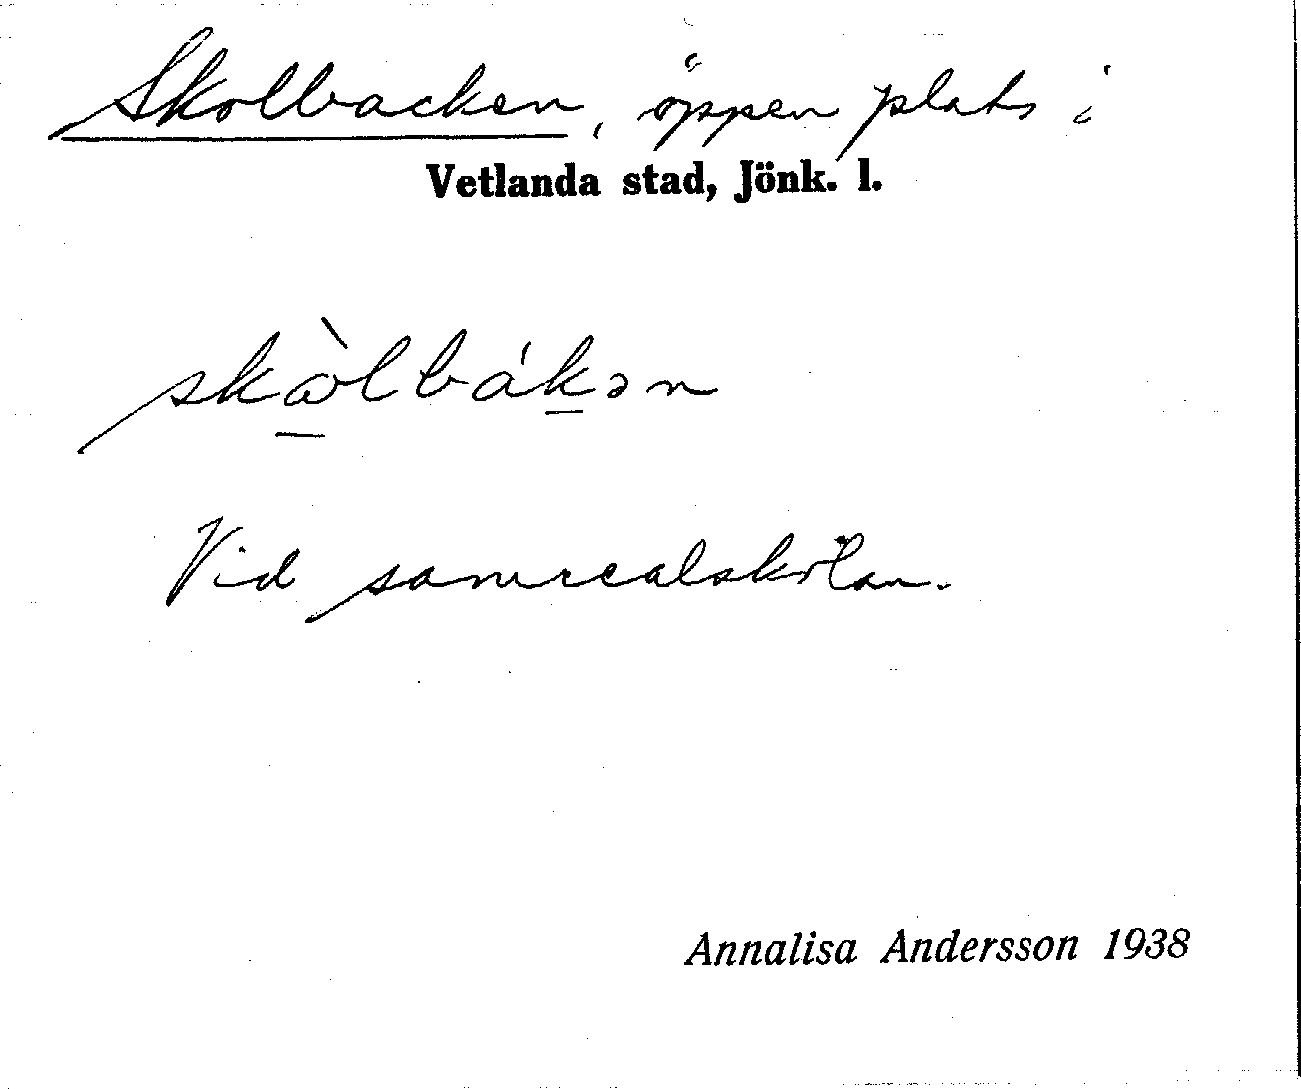 Skolbacken, öppen plats i
Vetlanda stad, Jönk. l.
skòlbákən
Vid samrealskolan.
Annalisa Andersson 1938